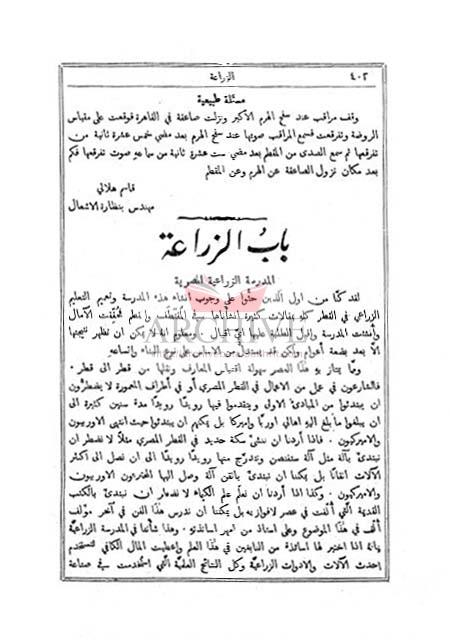 ٤٠٢
الزراعة
مسئلة طبيعية
وقف مراقب عند سفح الهرم الاكبر ونزلت صاعقة في القاهرة فوقعت على مقياس
الروضة وتفرقعت فسمع المراقب صوتها عند سفح الهرم بعد مضي خمس عشرة ثانية من
تفرقعها ثم سمع الصدى من المقطم بعد مضي ست عشرة ثانية من سماعه صوت تفرقعها فكم
بعد مكان نزول الصاعقة عن الهرم وعن المقطم
قاسم هلالي
مهندس بنظارة الاشغال
باب الزراعة
المدرسة الزراعية المصرية
لقد كنا من اول الذين حثوا على وجوب انشاء هذه المدرسة وتعميم التعليم
الزراعي في القطر كلو بمقالات كثيرة انشأناها في المقتطف والمقطم فحُقِّقت الآمال
وأنشئت المدرسة واقبل الطلبة عليها اي اقبال . ومعلوم انه لا يمكن ان تظهر نتيجتها
الا بعد بضعة أعوام ولكن قد يستدل من الاساس على نوع البناء واتساعه
ومما يمتاز به هذا العصر سهولة اقتباس المعارف ونقلها من قطر الى قطر .
فالشارعون في عمل من الاعمال في القطر المصري أو في أطراف المعمورة لا يضطرُّون
ان يبتدئوا من المبادئ الاولى ويتقدموا فيها رويدًا رويدًا مدة سنين كثيرة الى
ان يبلغوا ما بلغ اليه اهالي اوربا واميركا بل يمكنهم ان يبتدئوا حيث انتهى الاوربيون
والاميركيون . فاذا أردنا ان ننشئ سكة حديد في القطر المصري مثلاً لا نضطر ان
نبتدئ بآلة مثل آلة ستفنصن ونتدرَّج منها رويدًا رويدًا الى ان نصل الى اكثر
الآلات اتقانًا بل يمكننا ان نبتدئ باتقن آلة وصل اليها المخترعون الاوربيون
والاميركيون . وكذا اذا أردنا ان نعلّم علم الكيمياء لا نضطر ان نبتدئ بالكتب
القديمة التي أُلفت في عصر لافوازيه بل يمكننا ان ندرس هذا الفن في آخر مؤلف
أُلف في هذا الموضوع وعلى استاذ من امهر اساتذته . وهذا شأننا في المدرسة الزراعيَّة
فانهُ اذا اختير لها اساتذة من النابغين في هذا العلم وأُعطيت المال الكافي لتستخدم
احدث الآلات والادوات الزراعيَّة وكل النتائج العلميَّة التي استخدمت في صناعة
ARCHIVE